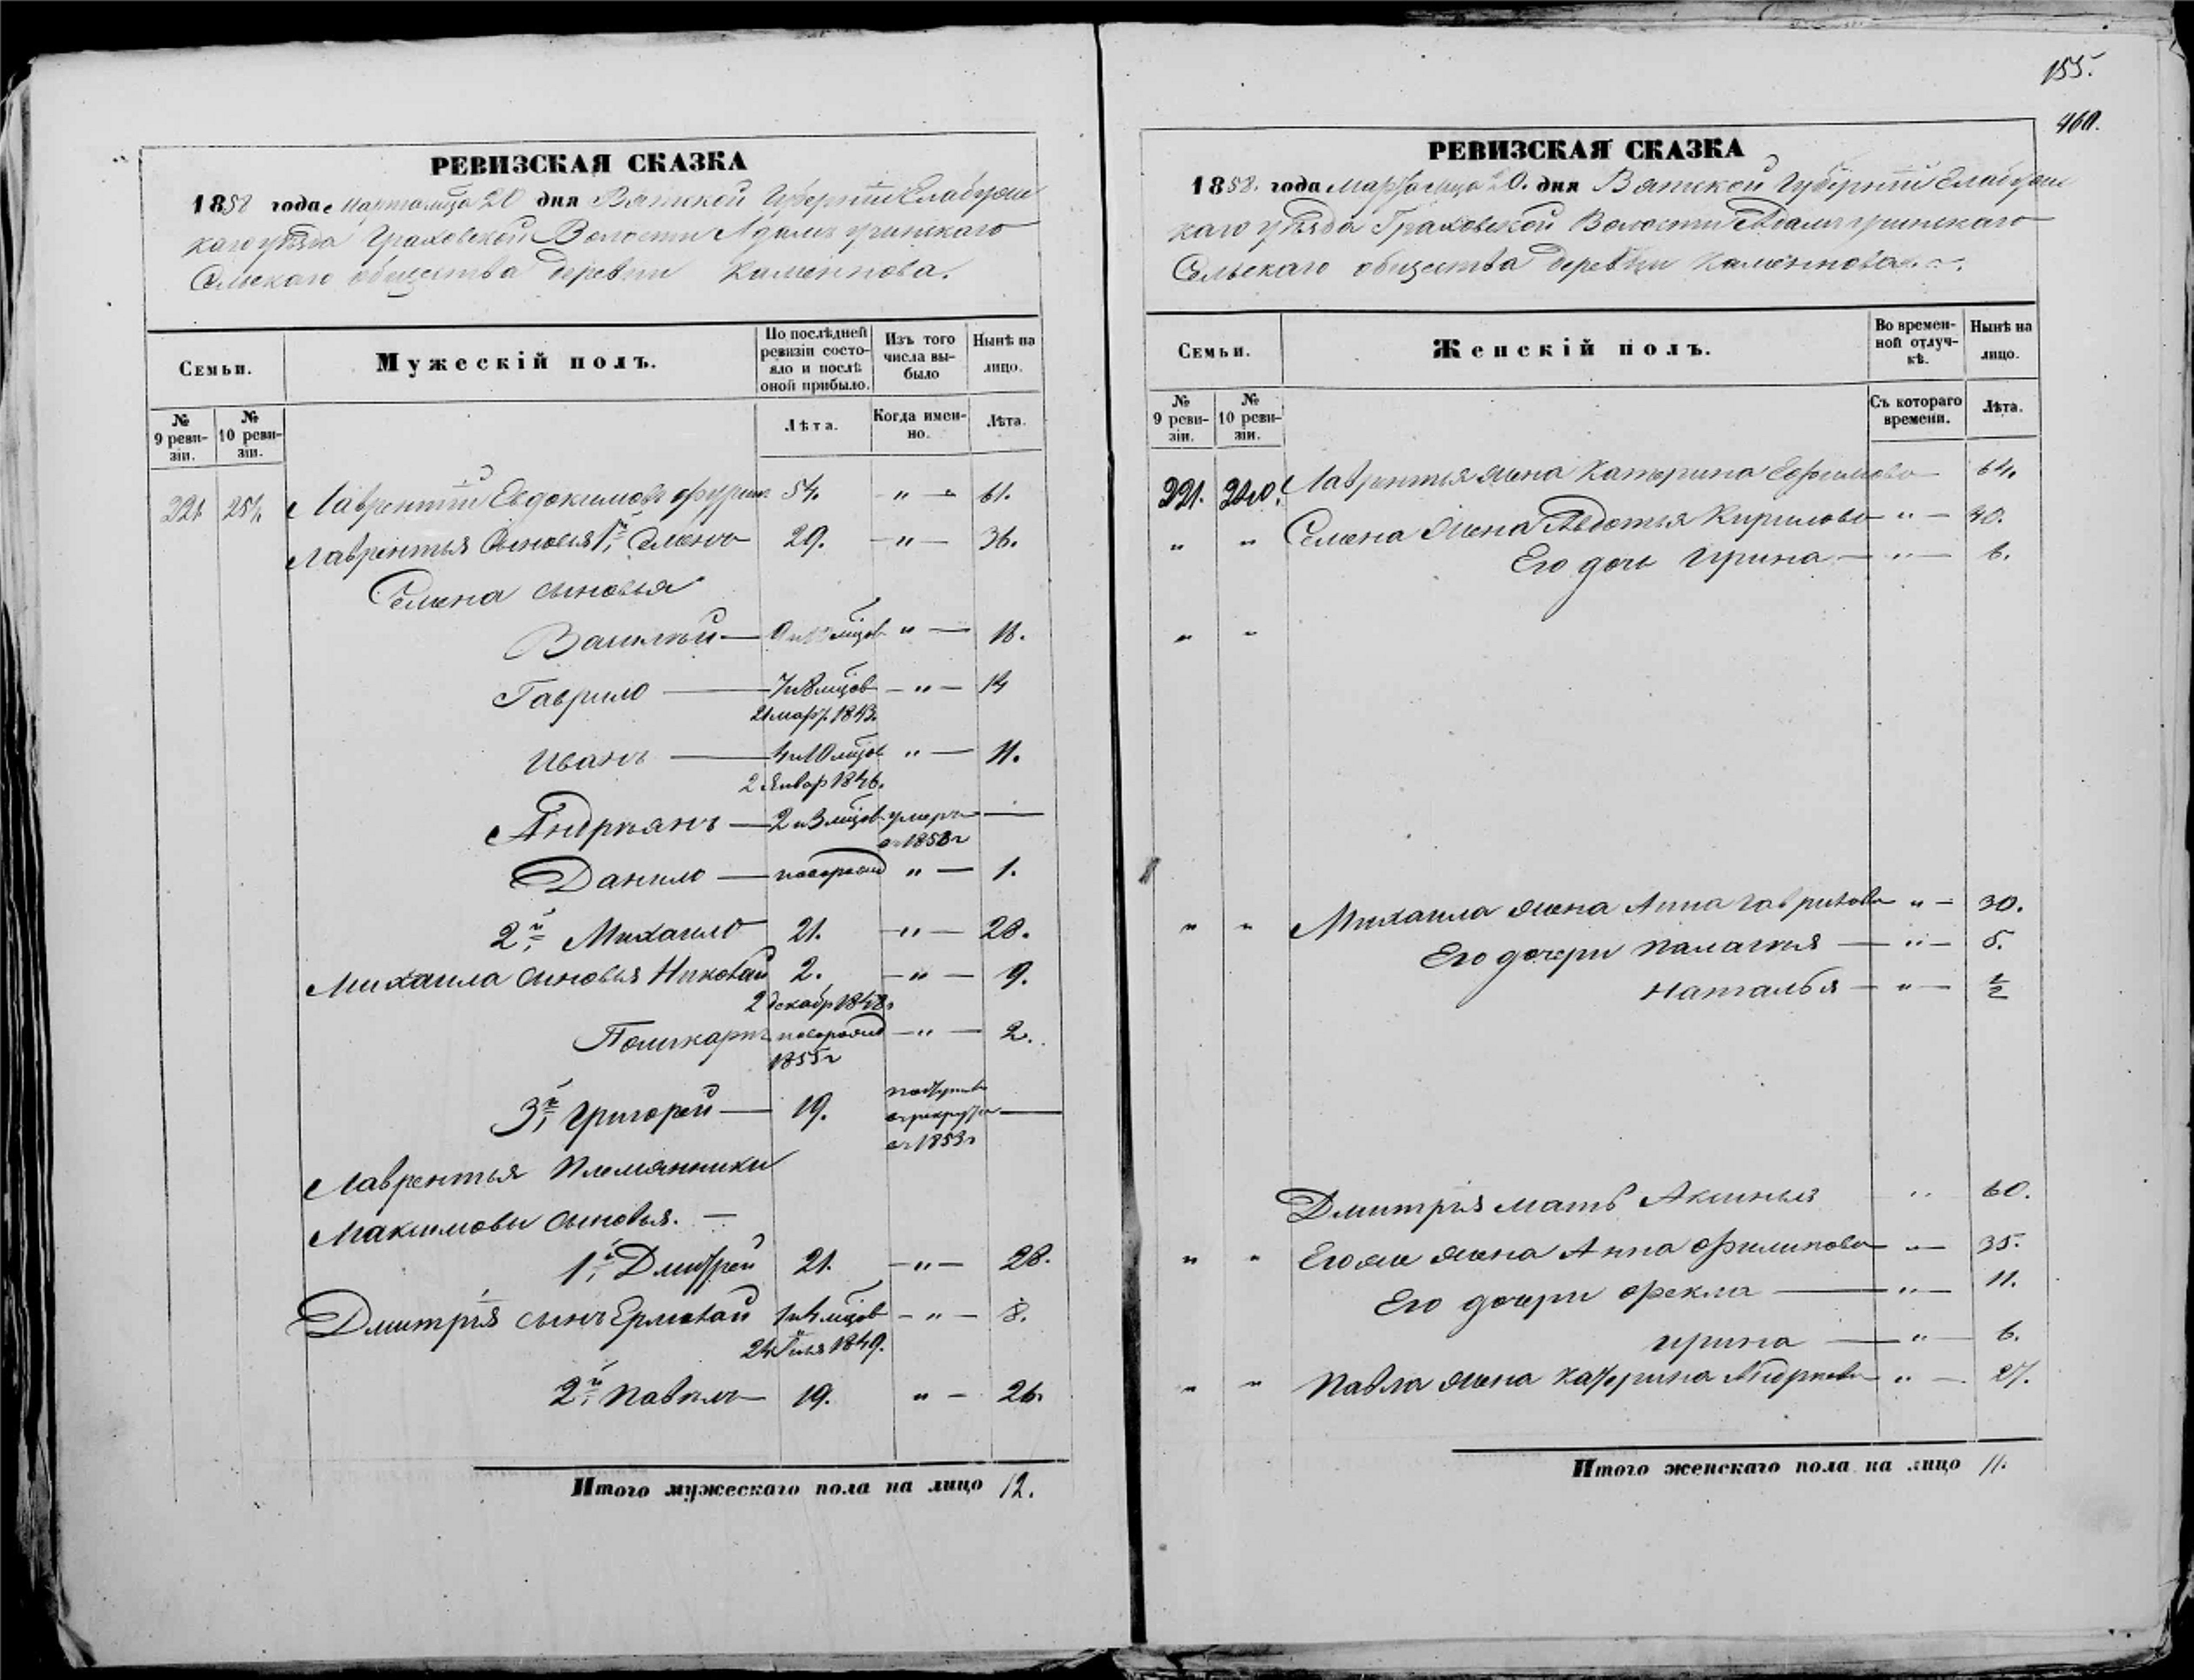 155.
460.
РЕВИЗСКАЯ СКАЗКА
1858 года Марта мца 20 дня Вятской Губернии Елабужс
каго уѣзда Граховской Волости
Сельскаго общества деревни Каменнова.
Семьи.
Мужескій полъ.
По послѣдней ревизіи состояло и послѣ оной прибыло.
Изъ того числа выбыло
Нынѣ на лицо.
№ 9 ревизіи.
№ 10 ревизіи.
Лѣта.
Когда именно.
Лѣта.
221 Лаврентій Евдокимовъ 54. " — 61.
Лаврентья Сыновья 1й Семенъ 29. — " — 36.
Семена сыновья
Василий — мцов " — 18.
Гаврило — 7 и 8 мцов — " — 14
21 март. 1843.
Иванъ — 4 и 10 мцов " — 11.
2 Январ 1846.
Андреянъ — 2 и 3 мцов умеръ —
в 1858 г
Данило — новорожд " — 1.
2й Михаило 21. — " — 28.
Михаила сыновья Николай 2. — " — 9.
2 декабр 1848.
Поликарпъ новорожд — " — 2.
1855 г
3й Григорей — 19. поступил
в рекруты —
в 1853 г
Лаврентья Племянники
Максимовы сыновья. —
1й Дмитрей 21. — " — 28.
Дмитрія сынъ Ермолай 1 и 4 мцов — " — 8.
24 Июля 1849.
2й Павелъ — 19. " — 26.
Итого мужескаго пола на лицо 12.
РЕВИЗСКАЯ СКАЗКА
1858. года Марта мца 20. дня Вятской Губерніи Елабужс
каго уѣзда Граховской Волости
Сельскаго общества деревни Каменнова.
Семьи.
Женскій полъ.
Во временной отлучкѣ.
Нынѣ на лицо.
№ 9 ревизіи.
№ 10 ревизіи.
Съ котораго времени.
Лѣта.
221. Лаврентья жена Катерина Ефимова — 64.
" " Семена Жена Авдотья Кирилова " — 40.
Его дочь Ирина — " — 6.
" "
" " Михаила жена Анна Гаврилова " — 30.
Его дочери Палагия — " — 5.
Наталья — " — ½
Дмитрія мать Аксинья " 60.
" " Его же жена Анна Филипова " — 35.
Его дочери Фекла — " — 11.
Ирина — " — 6.
" " Павла жена Катерина Андреева " — 27.
Итого женскаго пола на лицо 11.